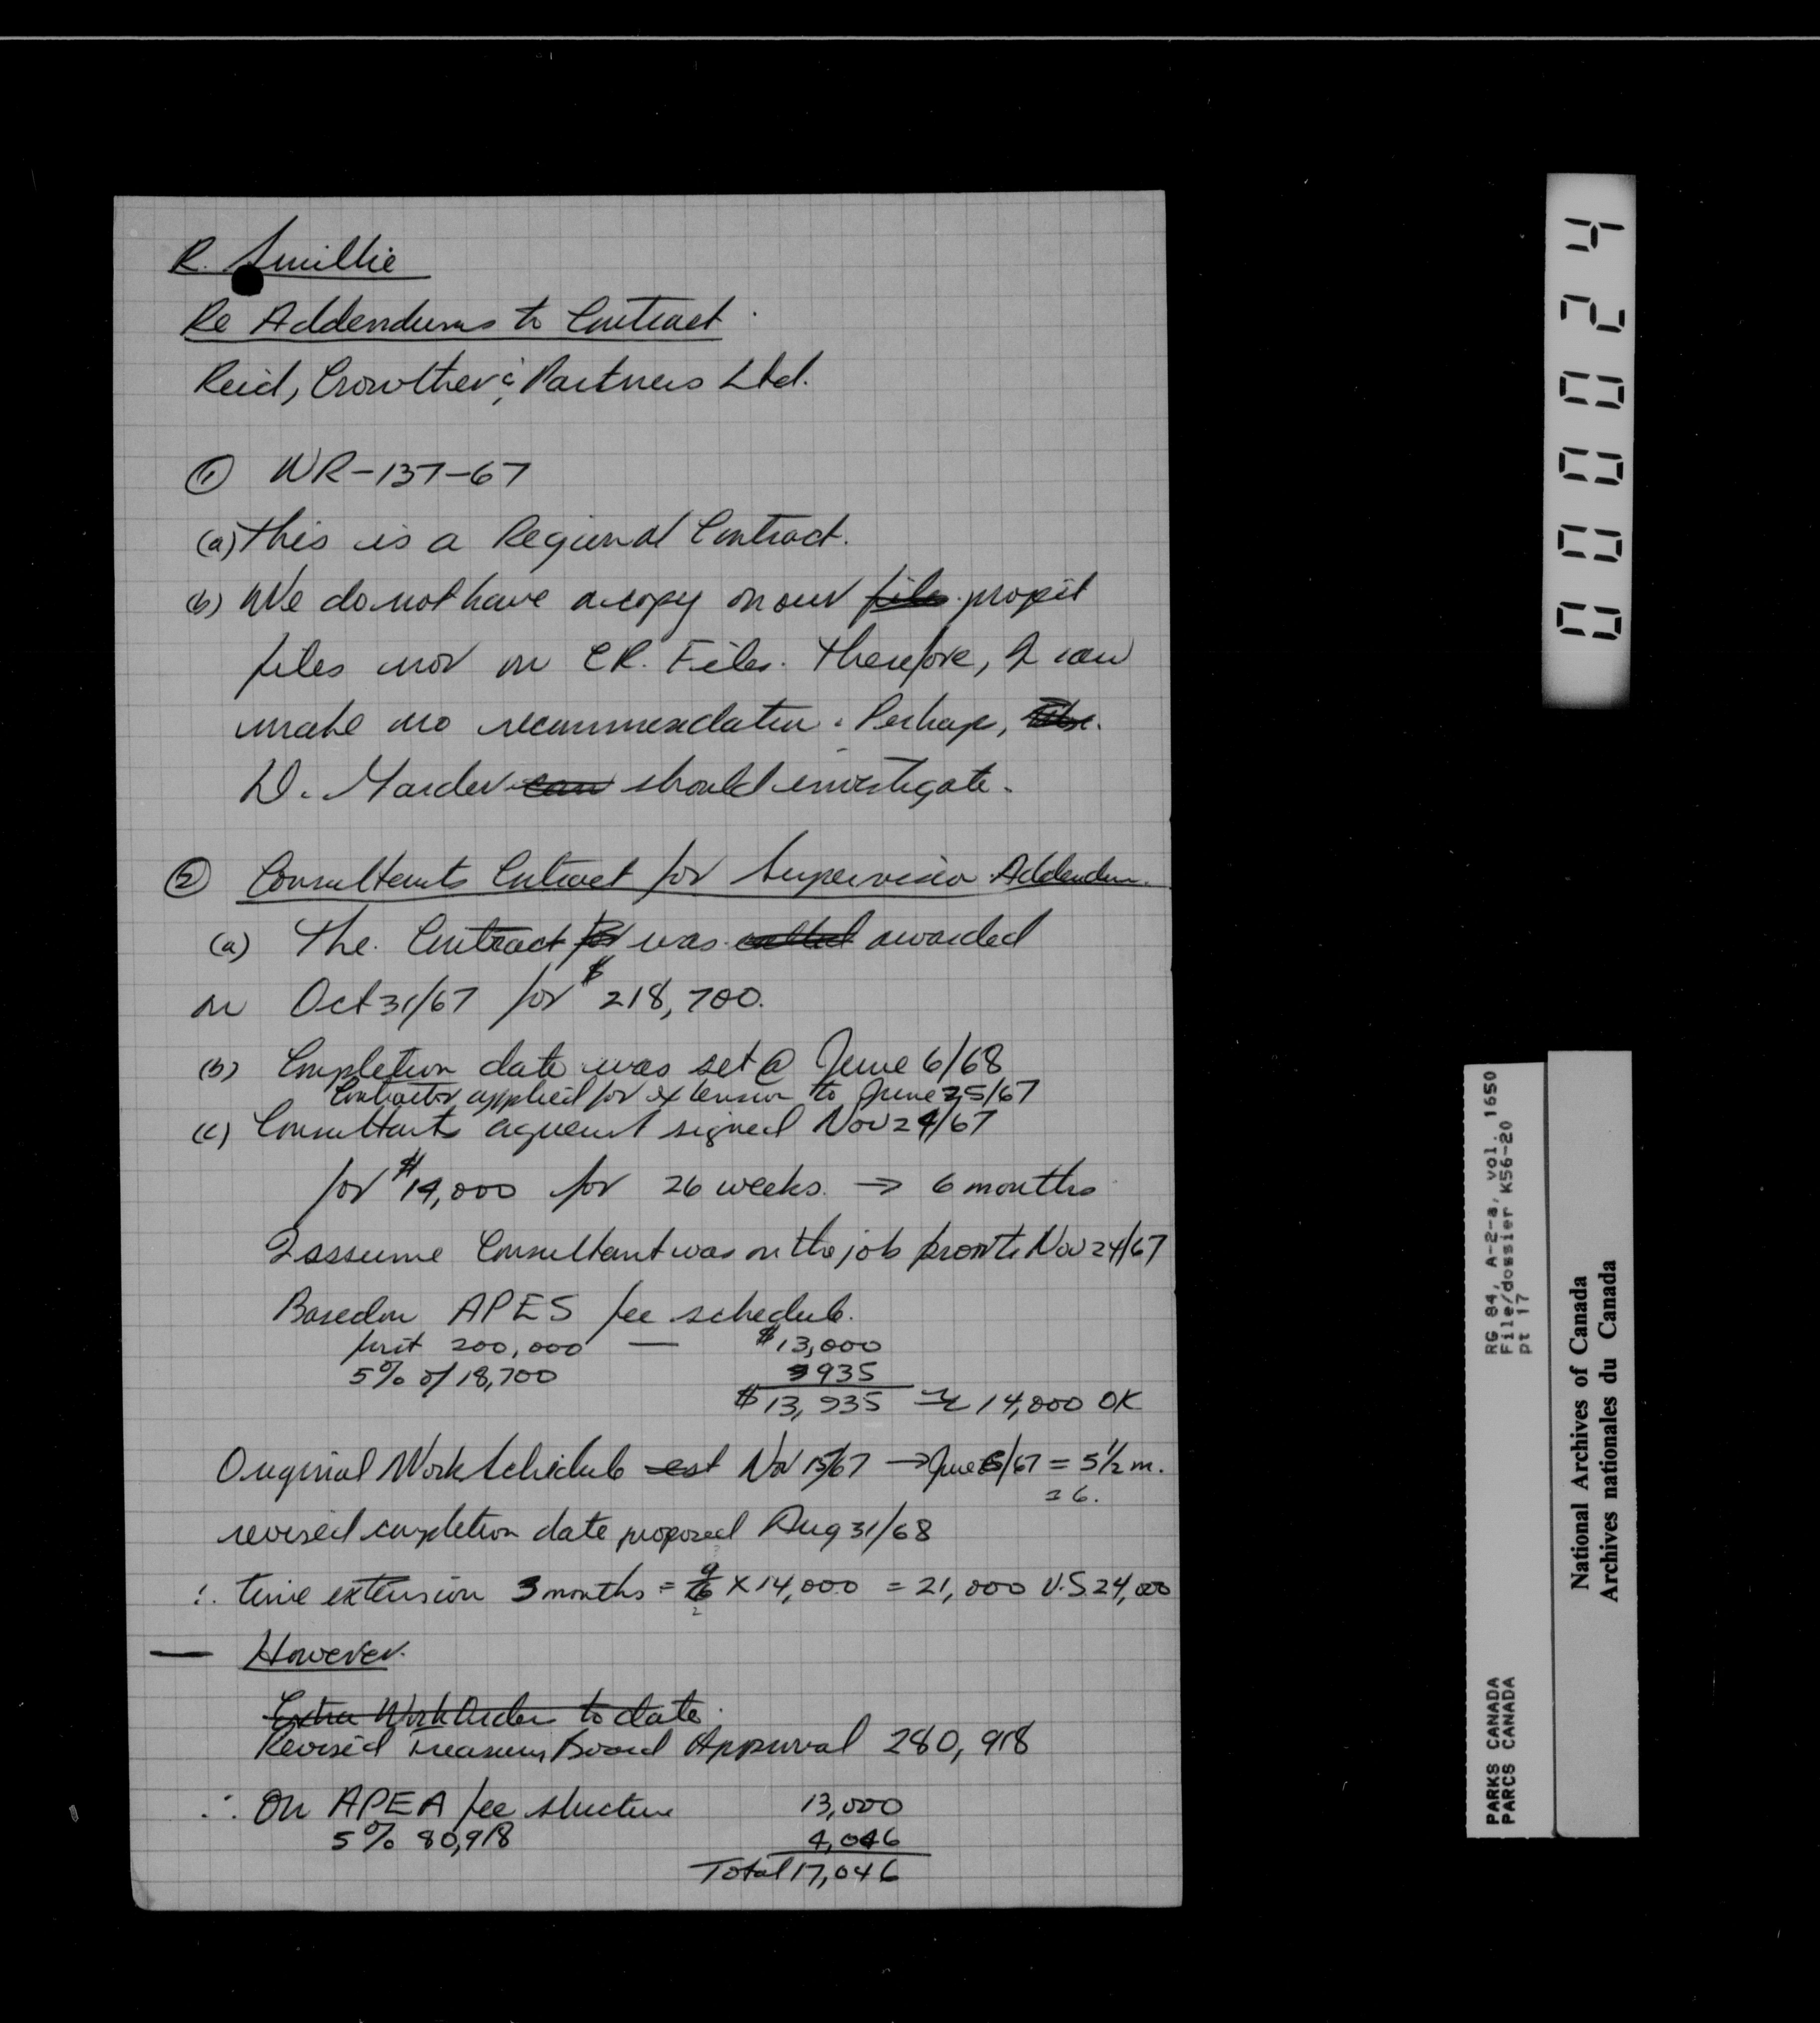 R. Smillie
Re Addendums to Contract
Reid, Crowther & Partners Ltd.
① WR-137-67
(a) This is a Regional Contract.
(b) We do not have a copy on our files project
files nor on CR. Files. Therefore, I can
make no recommendation. Perhaps,
D. should investigate.
② Consultants Contract for Supervision Addendum.
(a) The Contract for was called awarded
on Oct 31/67 for $218,700.
(b) Completion date was set @ June 6/68
Contractor applied for extension to June 25/67
(c) Consultants agreement signed Nov 24/67
for $14,000 for 26 weeks. → 6 months
I assume Consultant was on the job prior to Nov 24/67
Based on APES fee schedule.
first 200,000 — $13,000
5% of 18,700 935
$13,935 ≃ 14,000 OK
Original Work Schedule est Nov 15/67 → June 6/67 = 5½ m.
= 6.
revised completion date proposed Aug 31/68
∴ time extension 3 months = 9/6 × 14,000 = 21,000 V.S. 24,000
— However.
Extra Work Order to date.
Revised Treasury Board Approval 280,918
∴ On APEA fee structure 13,000
5% 80,918 4,046
Total 17,046
000024
RG 84, A-2-a, vol. 1650
File/dossier K56-20
pt 17
PARKS CANADA
PARCS CANADA
National Archives of Canada
Archives nationales du Canada